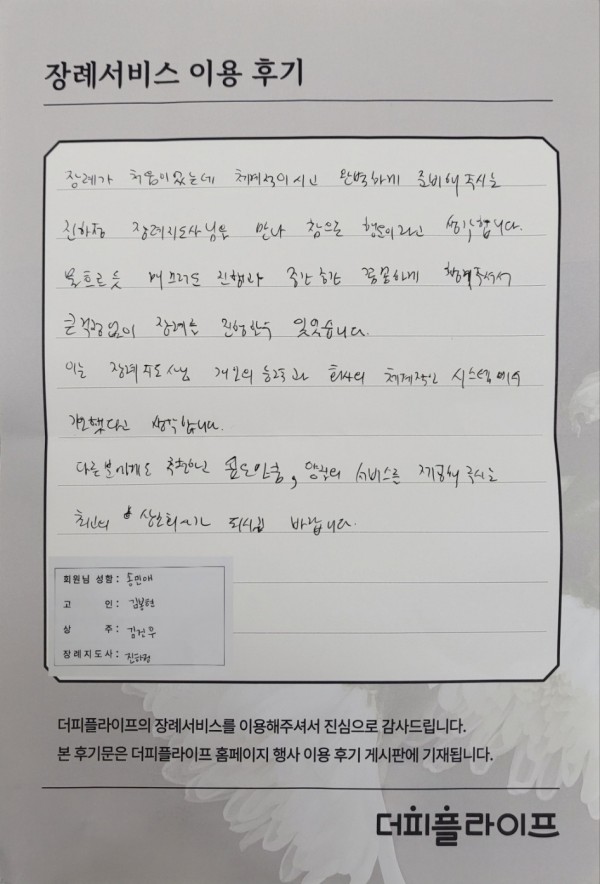 장례서비스 이용 후기
장례가 처음이었는데 체계적이시고 완벽하게 준비해주시는
진하정 장례지도사님을 만나 참으로 행운이라고 생각합니다.
물흐르듯 매끄러운 진행과 중간중간 꼼꼼하게 챙겨주셔서
큰걱정없이 장례를 진행할수 있었습니다.
이는 장례지도사님 개인의 능력과 회사의 체계적인 시스템에서
생각합니다.
다른분에게도 추천하고 싶은만큼, 양질의 서비스를 제공해 주시는
최고의 상조회사가 되시길 바랍니다.
회원님 성함: 송민애
고 인: 김봉현
상 주: 김건우
장례지도사: 진하정
더피플라이프의 장례서비스를 이용해주셔서 진심으로 감사드립니다.
본 후기문은 더피플라이프 홈페이지 행사 이용 후기 게시판에 기재됩니다.
더피플라이프